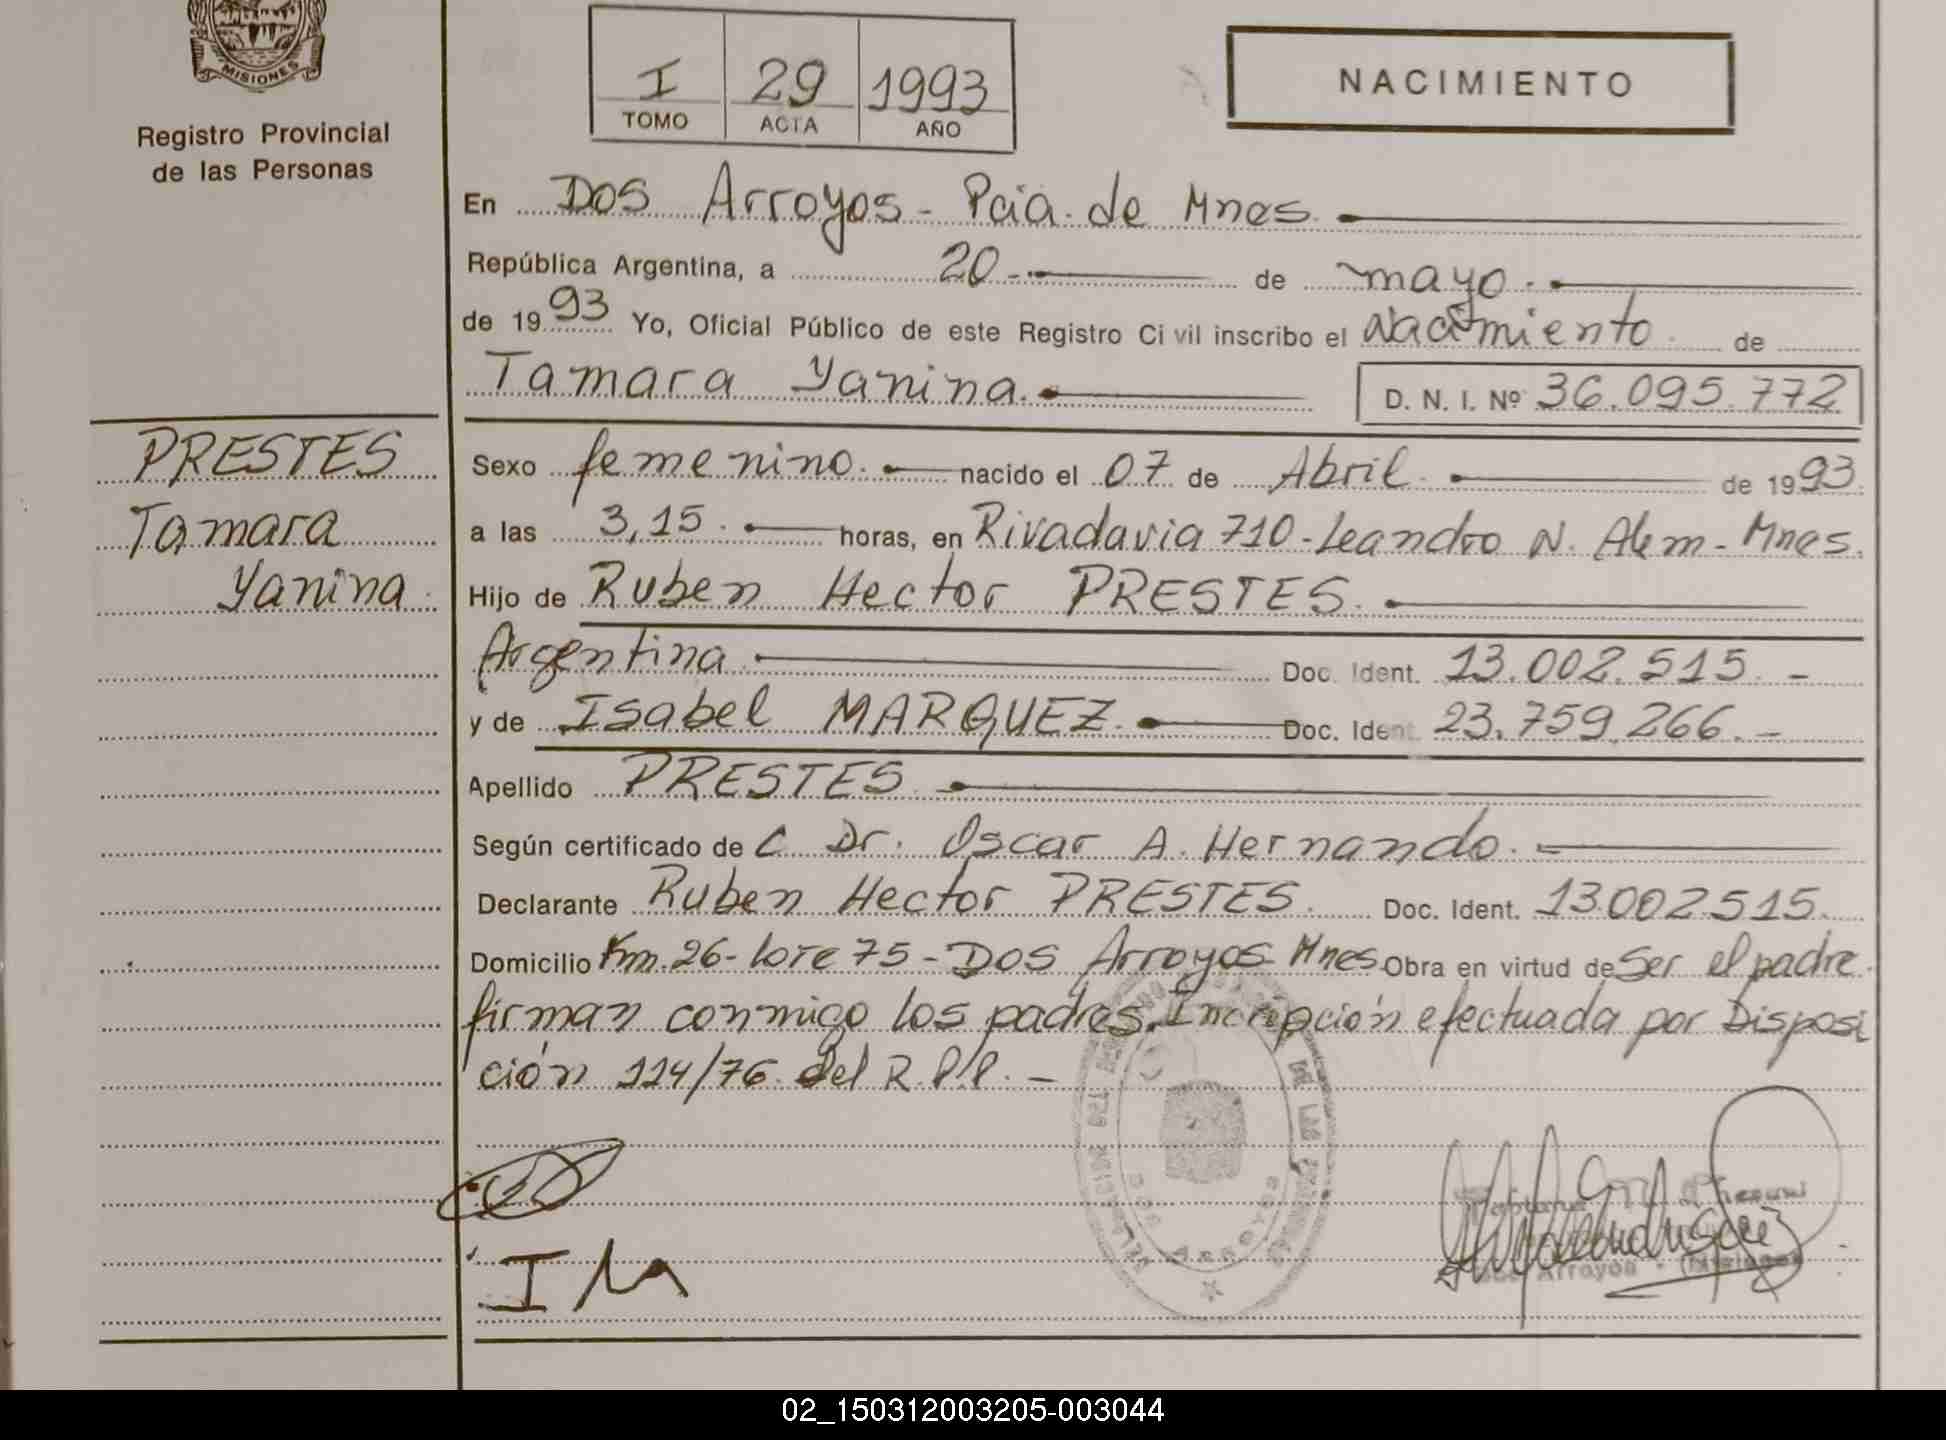 MISIONES
Registro Provincial
de las Personas
I 29 1993
TOMO ACTA AÑO
NACIMIENTO
En Dos Arroyos - Pcia. de Mnes.
República Argentina, a 20.- de mayo.
de 1993 Yo, Oficial Público de este Registro Civil inscribo el Nacimiento de
Tamara Yanina. D. N. I. Nº 36.095.772
PRESTES
Tamara
Yanina
Sexo femenino. nacido el 07 de Abril. de 1993.
a las 3,15. horas, en Rivadavia 710 - Leandro N. Alem - Mnes.
Hijo de Ruben Hector PRESTES.
Argentina Doc. Ident. 13.002.515. -
y de Isabel MARQUEZ. Doc. Ident. 23.759.266. -
Apellido PRESTES
Según certificado de C Dr. Oscar A. Hernando.
Declarante Ruben Hector PRESTES. Doc. Ident. 13.002.515.
Domicilio Km. 26 - lote 75 - Dos Arroyos - Mnes. Obra en virtud de Ser el padre.
firman conmigo los padres. Incripción efectuada por Disposi
ción 114/76 del R.P.P. -
I M
Dos Arroyos
Dos Arroyos - (Misiones)
02_150312003205-003044